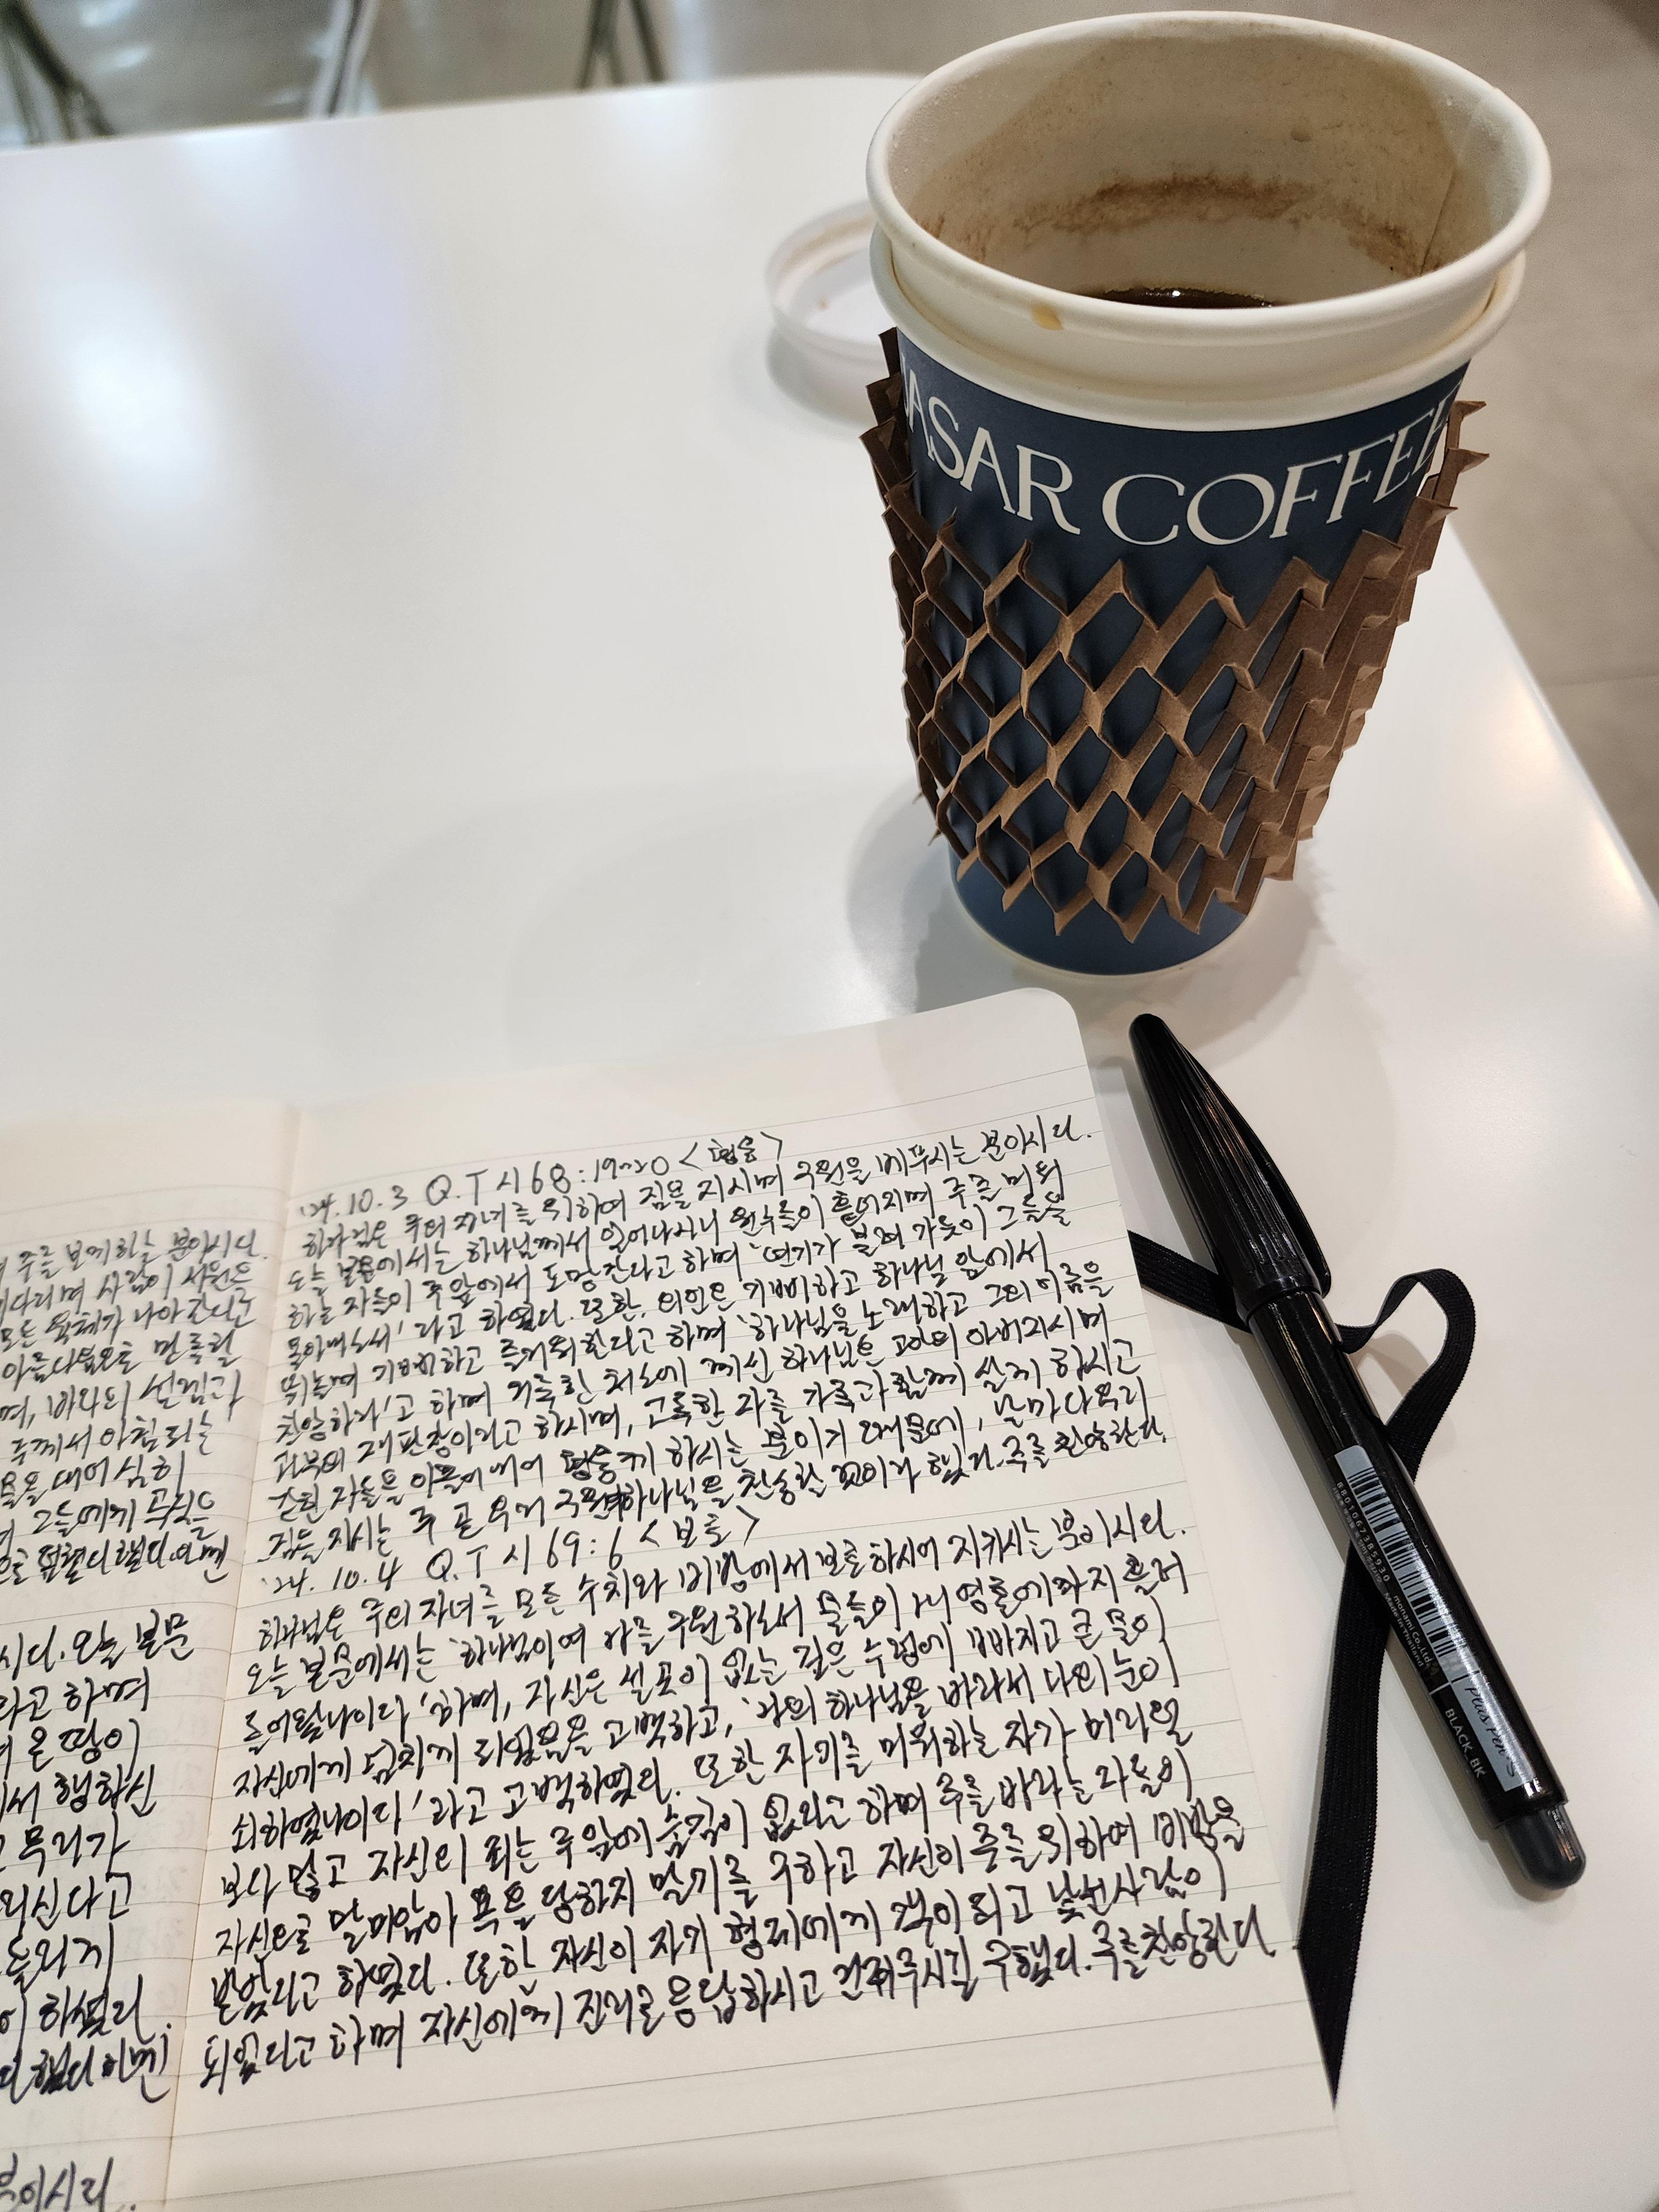 ASAR COFFEE
'24. 10. 3 Q.T 시 68:19~20 <형통>
하나님은 주의 자녀를 위하여 짐을 지시며 구원을 베푸시는 분이시다.
오늘 본문에서는 하나님께서 일어나시니 원수들이 흩어지며 주를 미워
하는 자들이 주 앞에서 도망간다고 하며 '연기가 불려 가듯이 그들을
몰아내소서' 라고 하였다. 또한, 의인은 기뻐하고 하나님 앞에서
뛰놀며 기뻐하고 즐거워한다고 하며 '하나님을 노래하고 그의 이름을
찬양하라'고 하며 거룩한 처소에 계신 하나님은 고아의 아버지시며
과부의 재판장이라고 하시며, 고독한 자를 가족과 함께 살게 하시고
갇힌 자들을 이끌어 내어 형통케 하시는 분이기 때문에, 날마다 우리
짐을 지시는 주 곧 우리 구원의 하나님을 찬송할 것이라 했다. 주를 찬양한다.
'24. 10. 4 Q.T 시 69:6 <보호>
하나님은 주의 자녀를 모든 수치와 비방에서 보호하시어 지키시는 분이시다.
오늘 본문에서는 '하나님이여 나를 구원하소서 물들이 내 영혼에까지 흘러
들어왔나이다' 하며, 자신은 설 곳이 없는 깊은 수렁에 빠지고 큰 물이
자신에게 넘치게 되었음을 고백하고, '나의 하나님을 바라서 나의 눈이
쇠하였나이다' 라고 고백하였다. 또한 자기를 미워하는 자가 머리털
보다 많고 자신의 죄는 주 앞에 숨김이 없다고 하며 주를 바라는 자들이
자신으로 말미암아 욕을 당하지 말기를 구하고 자신이 주를 위하여 비방을
받았다고 하였다. 또한 자신이 자기 형제에게 객이 되고 낯선 사람이
되었다고 하며 자신에게 진리로 응답하시고 건져주시길 구했다. 주를 찬양한다
주를 보게 하는 분이시다.
시다. 오늘 본문
라고 하며
온 땅이
서 행하신
무리가
하였다.
분이시다.
8801067385930
monami Co.,Ltd.
Made in Thailand
plus pen S
BLACK, BK